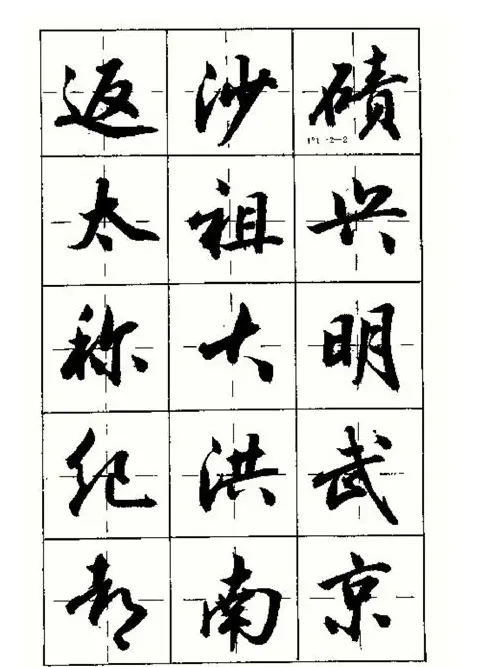 返沙碛
太祖兴
称大明
纪洪武
都南京